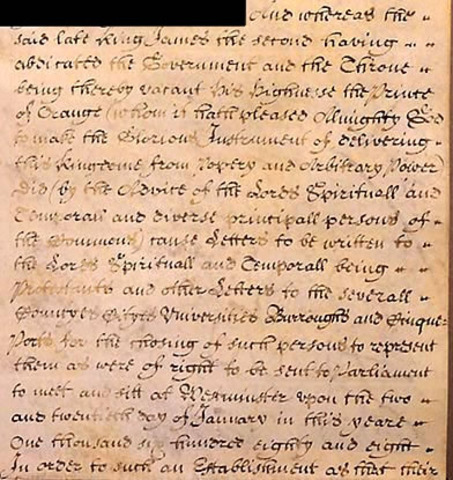 And whereas the "
said late King James the second having " "
abdicated the Government and the Throne "
being thereby vacant His Highnesse the Prince
of Orange (whom it hath pleased Almighty God
to make the Glorious Instrument of delivering "
this Kingdome from Popery and Arbitrary Power)
did (by the Advice of the Lords Spirituall and
Temporall and diverse principall persons of "
the Commons) cause Letters to be written to "
the Lords Spirituall and Temporall being " "
Protestants and other Letters to the severall "
Countyes Cityes Universities Burroughs and Cinque-
Ports for the chosing of such persons to represent
them as were of right to be sent to Parliament
to meet and sitt at Westminster upon the two "
and twentieth day of January in this yeare "
One thousand six hundred eighty and eight "
In order to such an Establishment as that their